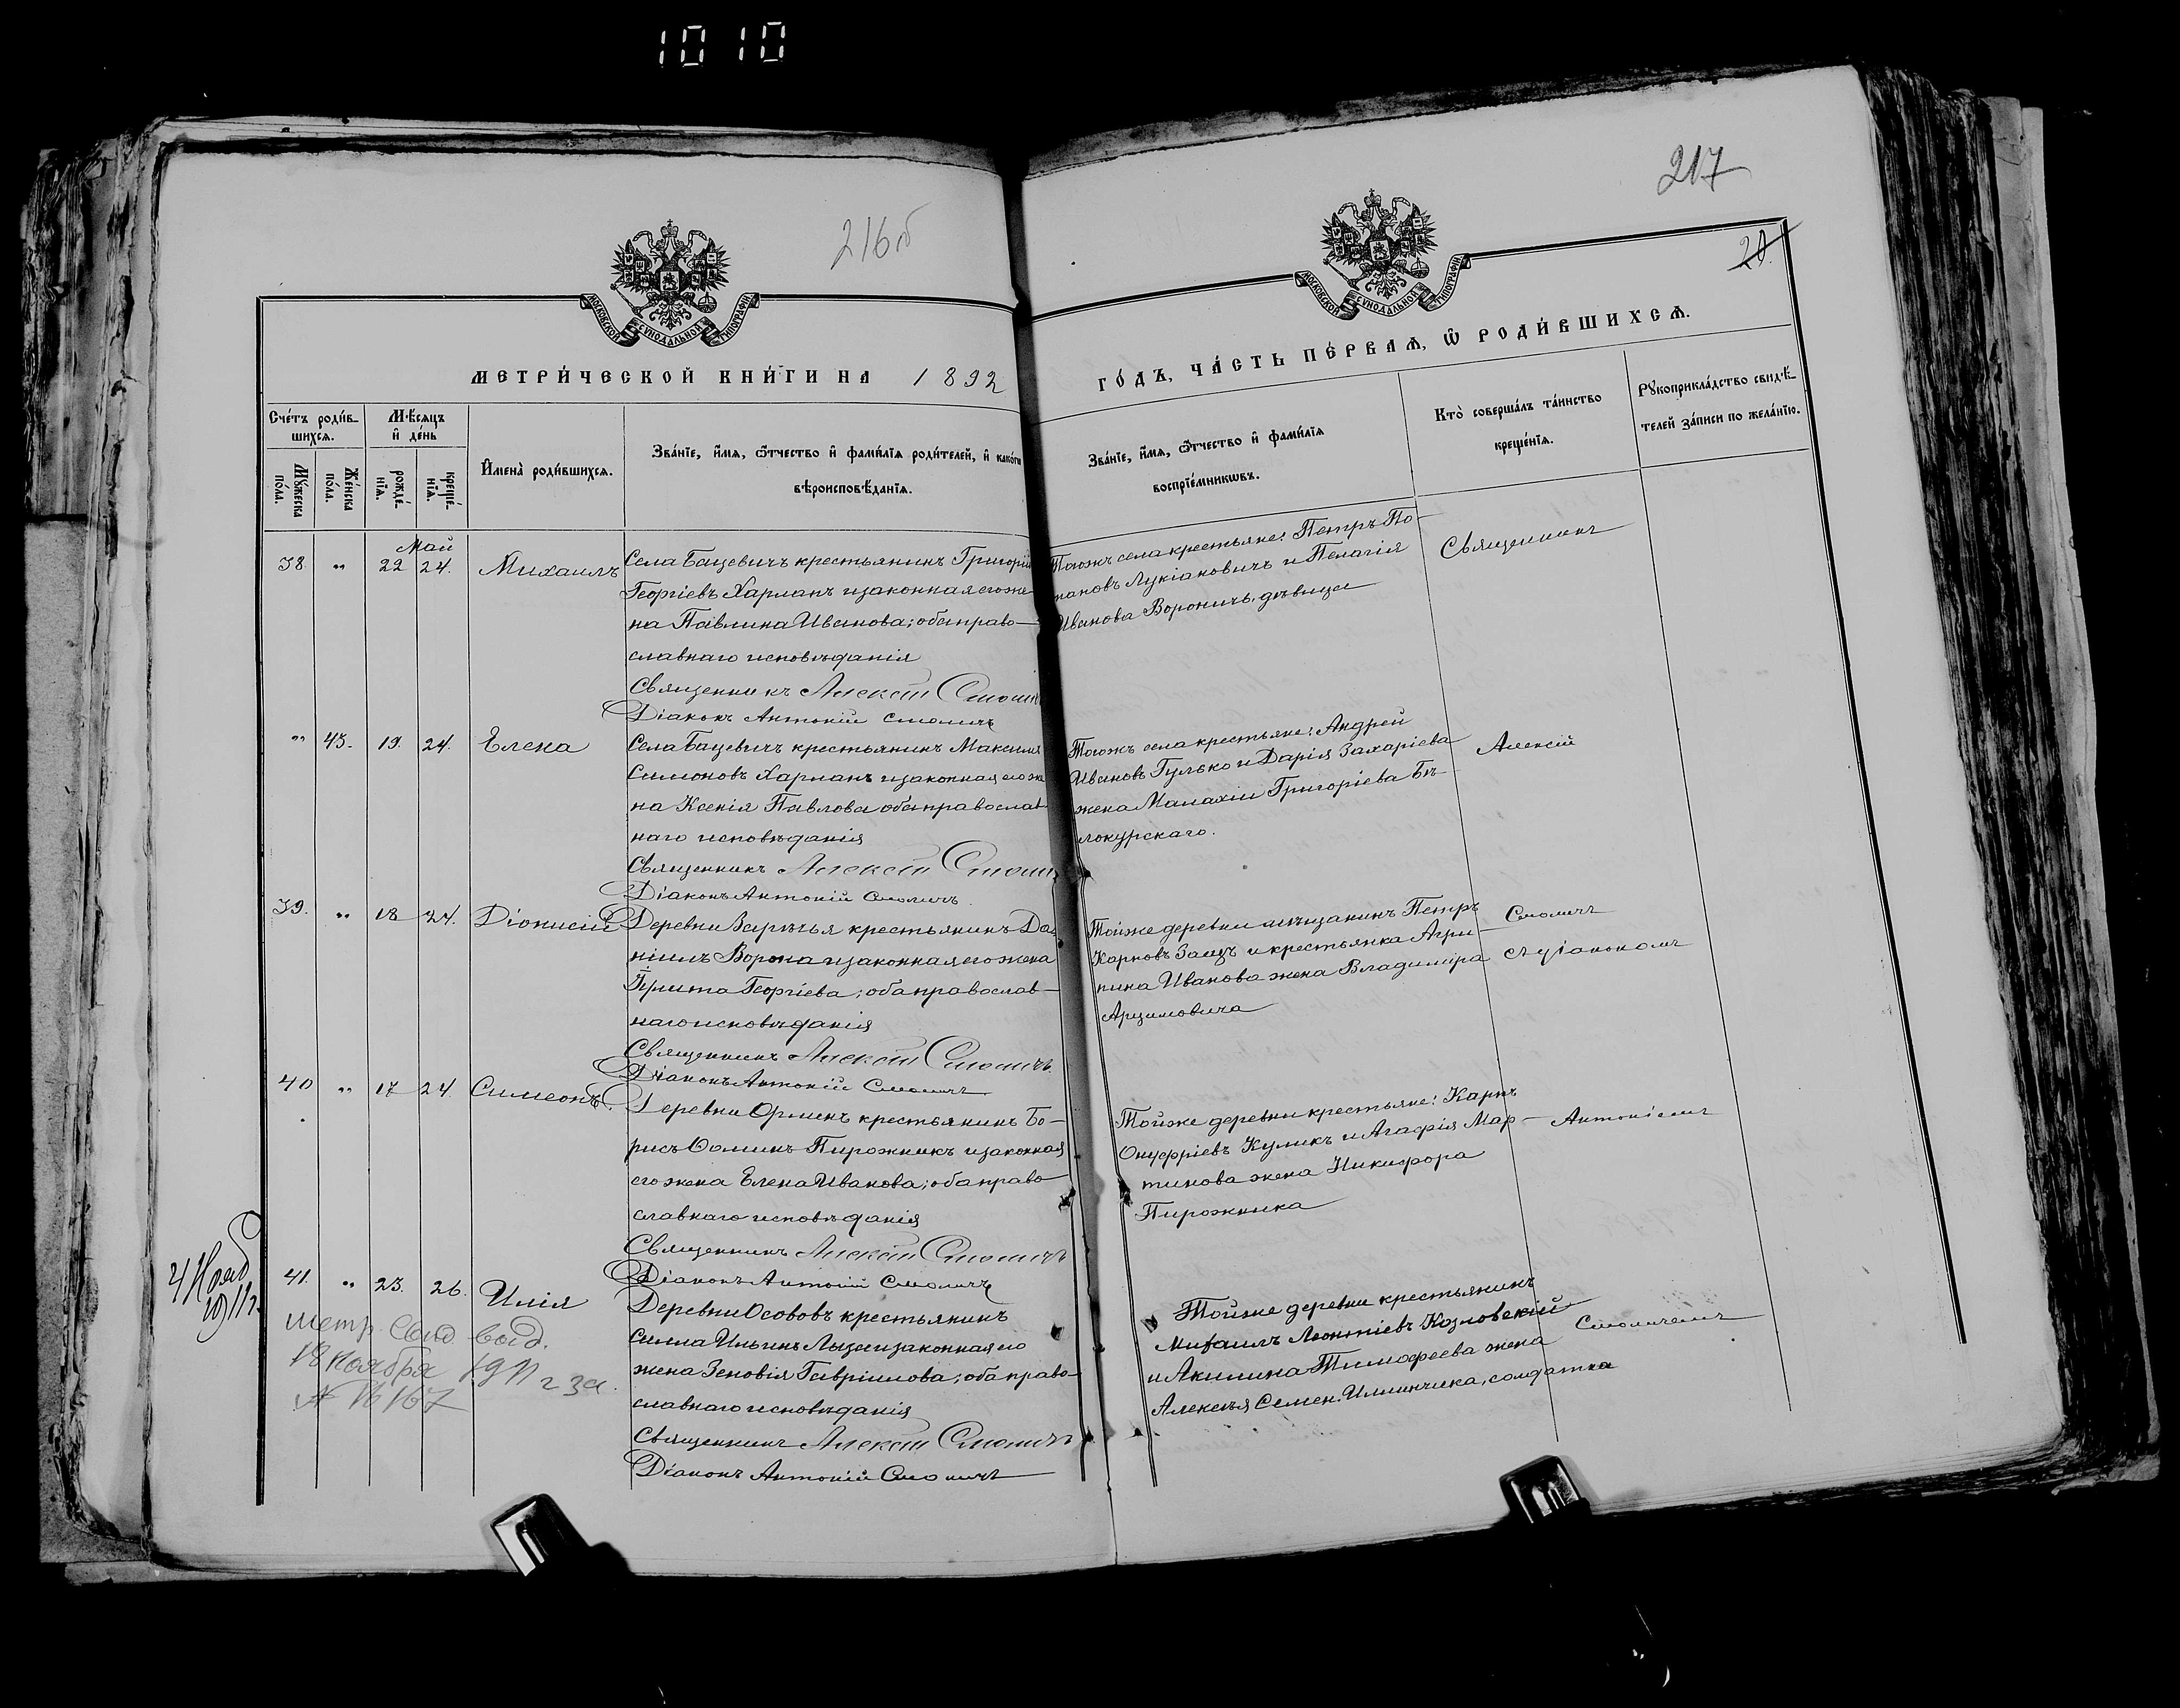 1010
216б
217
20.
МОСКОВСКОЙ СѴНОДАЛЬНОЙ ТИПОГРАФІИ
МОСКОВСКОЙ СѴНОДАЛЬНОЙ ТИПОГРАФІИ
МЕТРИ́ЧЕСКОЙ КНИ́ГИ НА 1892
ГО́ДЪ, ЧА́СТЬ ПЕ́РВАѦ, Ѿ РОДИ́ВШИХСѦ.
Сче́тъ роди́в-
шихсѧ.
Мѣ́сѧцъ
и҆ де́нь
Мꙋ́жеска
по́ла.
Же́нска
по́ла.
рожде́-
нїѧ.
креще́-
нїѧ.
И҆мена̀ роди́вшихсѧ.
Зва́нїе, и҆́мѧ, ѻ҆́тчество и҆ фами́лїѧ роди́телей, и҆ како́гѡ
вѣроисповѣ́данїѧ.
Зва́нїе, и҆́мѧ, ѻ҆́тчество и҆ фами́лїѧ
воспрїе́мникѡвъ.
Кто̀ соверша́лъ та́инство
креще́нїѧ.
Рꙋкоприкла́дство свидѣ́-
телей за́писи по жела́нїю.
Май
38. " 22 24. Михаилъ
Села Бацевичъ крестьянинъ Григорій
Георгіевъ Харланъ и законная его же-
на Павлина Иванова; оба право-
славнаго исповѣданія
Священникъ Алексій Смоличъ
Діаконъ Антоній Смоличъ
Тогожъ села крестьяне: Петръ По-
тановъ Лукіановичъ и Пелагія
Иванова Вороничъ, дѣвица
Священникъ
" 43. 19. 24. Елена
Села Бацевичъ крестьянинъ Максимъ
Симоновъ Харланъ и законная его же
на Ксенія Павлова оба православ-
наго исповѣданія
Священникъ Алексій Смоличъ
Діаконъ Антоній Смоличъ.
Тогожъ села крестьяне: Андрей
Ивановъ Гулько и Дарія Захаріева
жена Малахіи Григоріева Бѣ-
локурскаго.
Алексій
39. " 18 24. Діонисій
Деревни Зарѣчья крестьянинъ Да-
ніилъ Ворона и законная его жена
Георгіева; оба православ-
наго исповѣданія
Священникъ Алексій Смоличъ
Діаконъ Антоній Смоличъ
Тойже деревни мѣщанинъ Петръ
Карповъ Заяцъ и крестьянка Агри-
пина Иванова жена Владиміра
Арцимовича
Смоличъ
съ діакономъ
40 " 17 24. Симеонъ.
Деревни Орлинъ крестьянинъ Бо-
рисъ Ѳоминъ Пирожникъ и законная
его жена Елена Иванова; оба право-
славнаго исповѣданія
Священникъ Алексій Смоличъ
Діаконъ Антоній Смоличъ
Тойже деревни крестьяне: Карпъ
Онуфріевъ Куликъ и Агафія Мар-
тинова жена Никифора
Пирожника
Антоніемъ
4 Нояб
1911 г.
41. " 23. 26. Илія
Деревни Осововъ крестьянинъ
Ильинъ Лыза и законная его
жена Зеновія Гавріилова; оба право-
славнаго исповѣданія
Священникъ Алексій Смоличъ
Діаконъ Антоній Смоличъ
Тойже деревни крестьянинъ
Михаилъ Леонтіевъ Козловскій
и Акилина Тимофеева жена
Алексѣя Семен. Илинчика, солдатка
Смоличемъ
метр. свид. выд.
18 ноября 1911 г за
№ 167